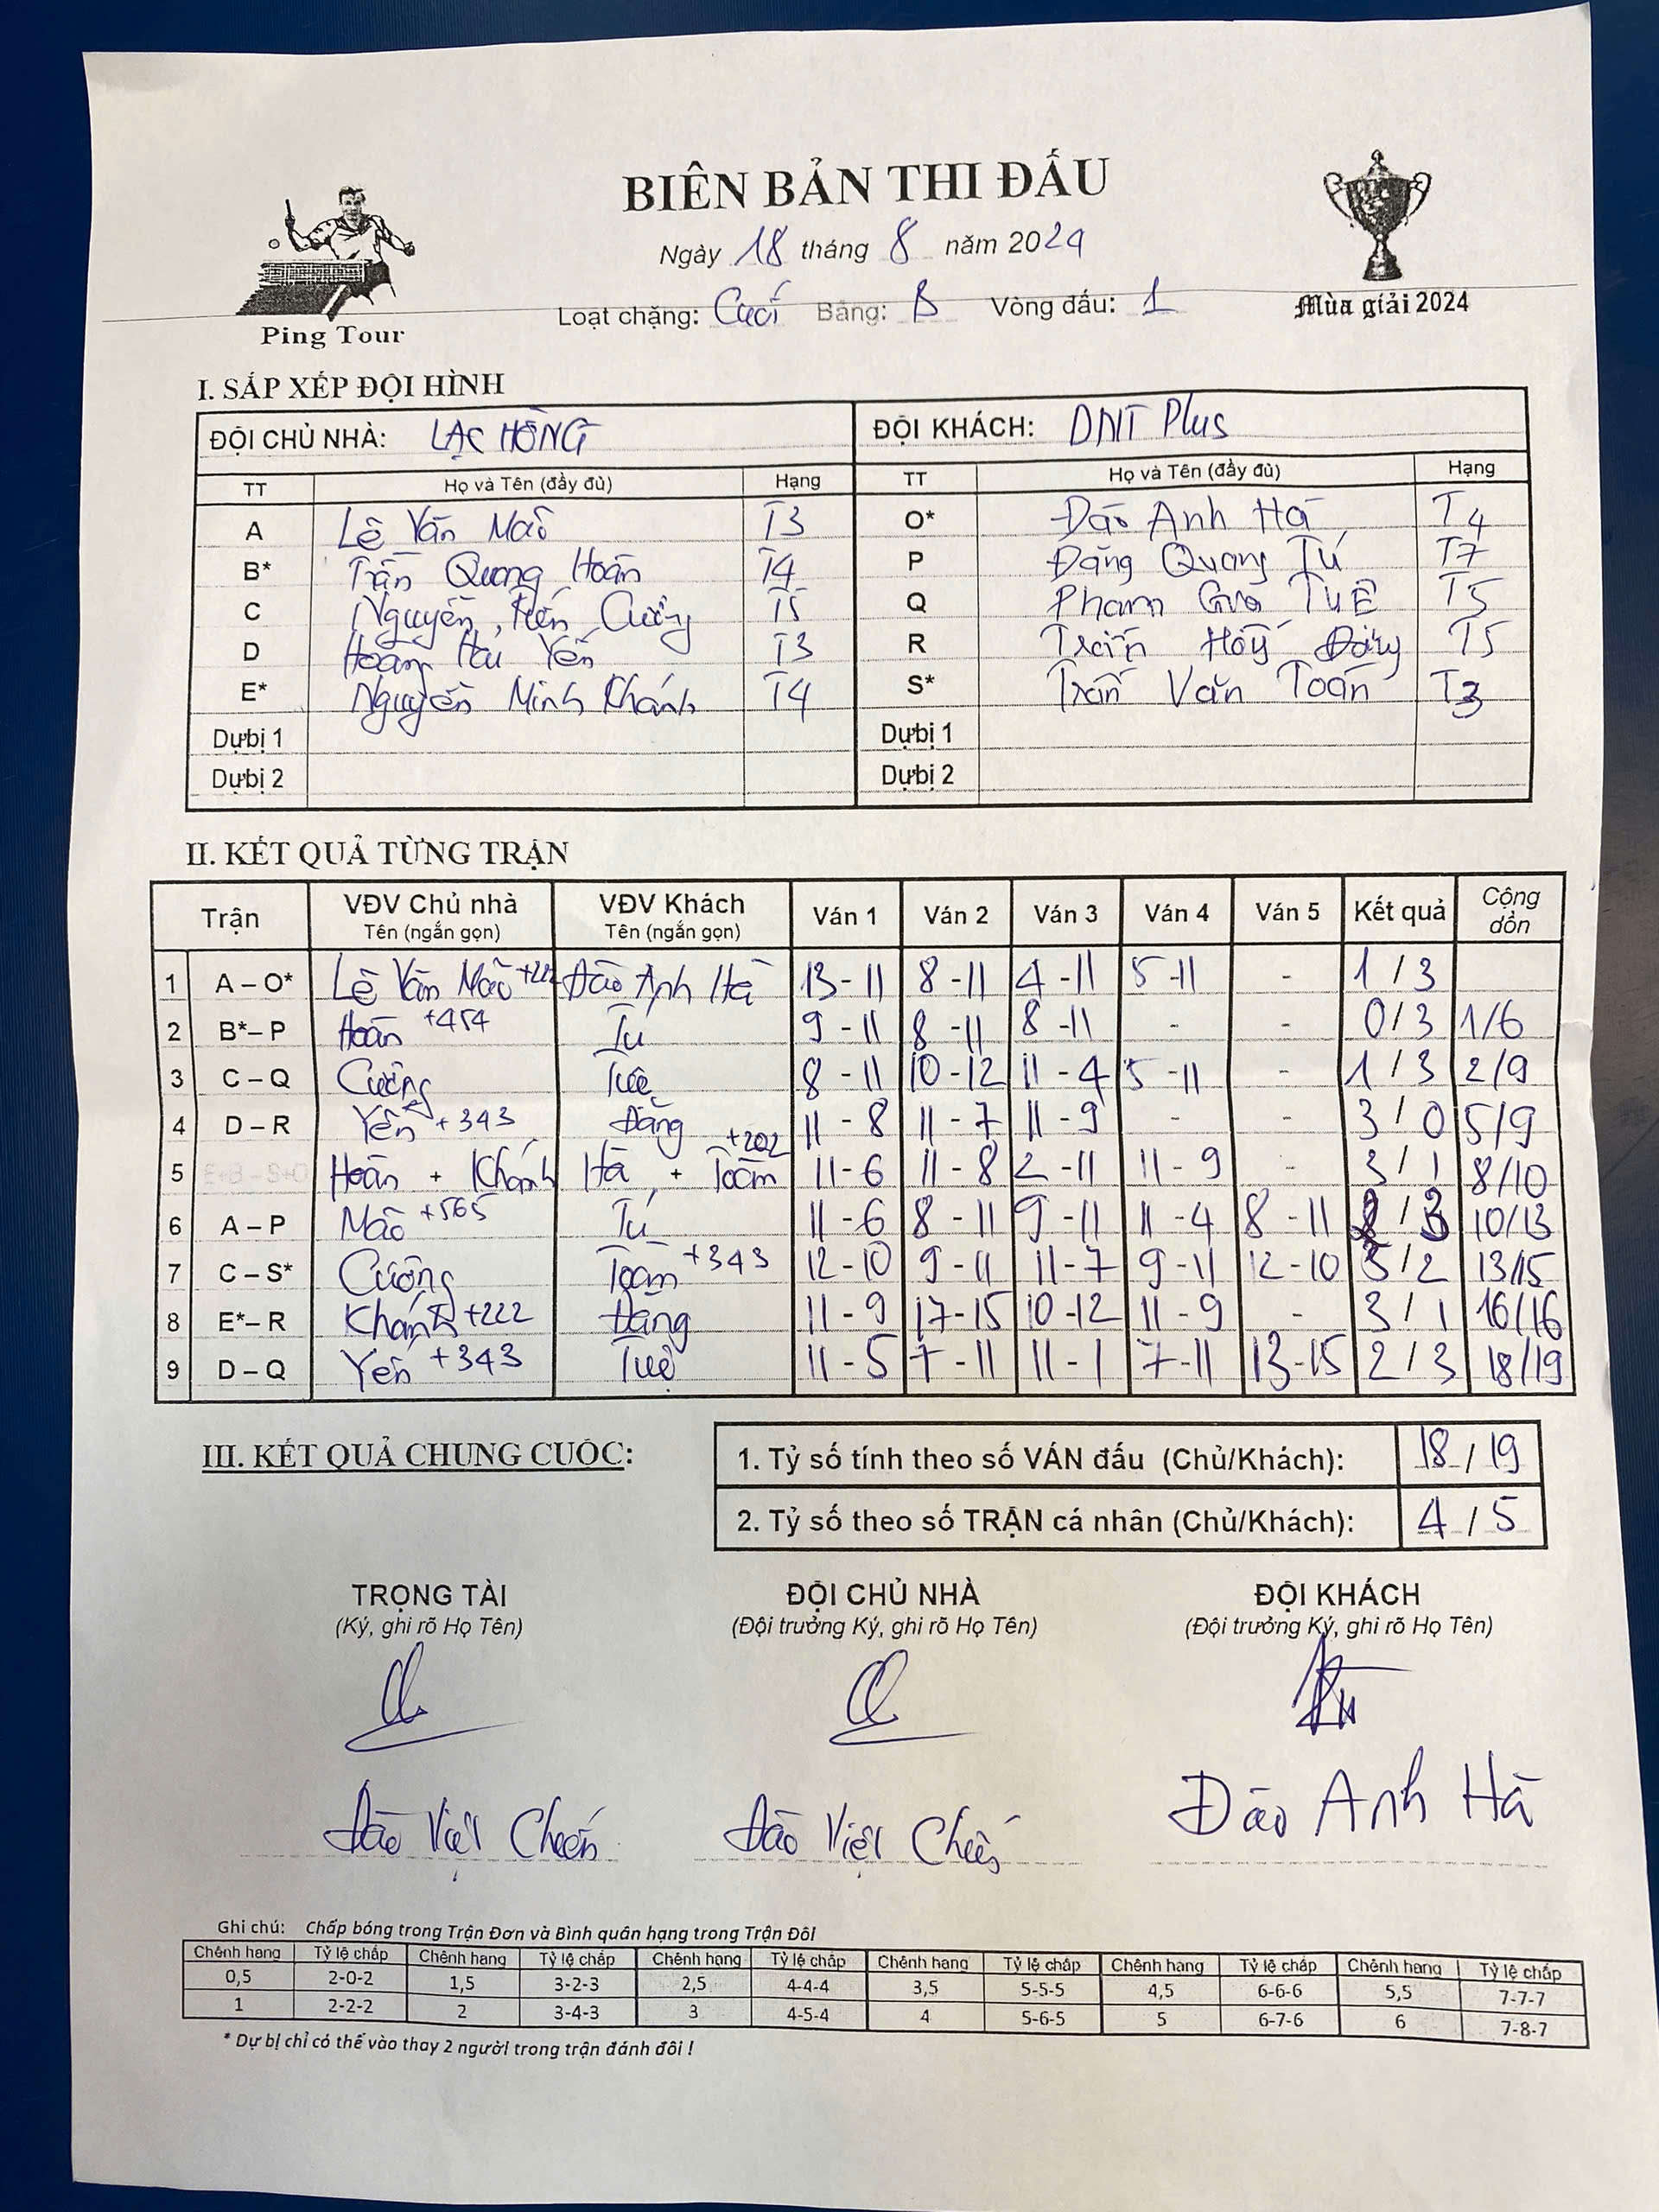 BIÊN BẢN THI ĐẤU
Ngày 18 tháng 8 năm 2024
Loạt chặng: Cuối Bảng: B Vòng đấu: 1
Ping Tour
Mùa giải 2024
I. SẮP XẾP ĐỘI HÌNH
ĐỘI CHỦ NHÀ: LẠC HỒNG ĐỘI KHÁCH: DNT Plus
TT Họ và Tên (đầy đủ) Hạng TT Họ và Tên (đầy đủ) Hạng
A Lê Văn Mão T3 O* Đào Anh Hà T4
B* Trần Quang Hoàn T4 P Đặng Quang Tú T7
C Nguyễn Tiến Cường T5 Q Phạm Gia Tuệ T5
D Hoàng Hải Yến T3 R Trần Đăng T5
E* Nguyễn Minh Khánh T4 S* Trần Văn Toán T3
Dự bị 1 Dự bị 1
Dự bị 2 Dự bị 2
II. KẾT QUẢ TỪNG TRẬN
Trận VĐV Chủ nhà Tên (ngắn gọn) VĐV Khách Tên (ngắn gọn) Ván 1 Ván 2 Ván 3 Ván 4 Ván 5 Kết quả Cộng dồn
1 A – O* Lê Văn Mão +222 Đào Anh Hà 13-11 8-11 4-11 5-11 - 1/3
2 B* – P Hoàn +454 Tú 9-11 8-11 8-11 - - 0/3 1/6
3 C – Q Cường Tuệ 8-11 10-12 11-4 5-11 - 1/3 2/9
4 D – R Yến +343 Đăng 11-8 11-7 11-9 - - 3/0 5/9
5 E+B – S+O Hoàn + Khánh Hà + Toán +202 11-6 11-8 2-11 11-9 - 3/1 8/10
6 A – P Mão +565 Tú 11-6 8-11 9-11 11-4 8-11 2/3 10/13
7 C – S* Cường Toán +343 12-10 9-11 11-7 9-11 12-10 3/2 13/15
8 E* – R Khánh +222 Đăng 11-9 17-15 10-12 11-9 - 3/1 16/16
9 D – Q Yến +343 Tuệ 11-5 7-11 11-1 7-11 13-15 2/3 18/19
III. KẾT QUẢ CHUNG CUỘC:
1. Tỷ số tính theo số VÁN đấu (Chủ/Khách): 18/19
2. Tỷ số theo số TRẬN cá nhân (Chủ/Khách): 4/5
TRỌNG TÀI ĐỘI CHỦ NHÀ ĐỘI KHÁCH
(Ký, ghi rõ Họ Tên) (Đội trưởng Ký, ghi rõ Họ Tên) (Đội trưởng Ký, ghi rõ Họ Tên)
Đào Việt Chiến Đào Việt Chiến Đào Anh Hà
Ghi chú: Chấp bóng trong Trận Đơn và Bình quân hạng trong Trận Đôi
Chênh hạng Tỷ lệ chấp Chênh hạng Tỷ lệ chấp Chênh hạng Tỷ lệ chấp Chênh hạng Tỷ lệ chấp Chênh hạng Tỷ lệ chấp Chênh hạng Tỷ lệ chấp
0,5 2-0-2 1,5 3-2-3 2,5 4-4-4 3,5 5-5-5 4,5 6-6-6 5,5 7-7-7
1 2-2-2 2 3-4-3 3 4-5-4 4 5-6-5 5 6-7-6 6 7-8-7
* Dự bị chỉ có thể vào thay 2 người trong trận đánh đôi !